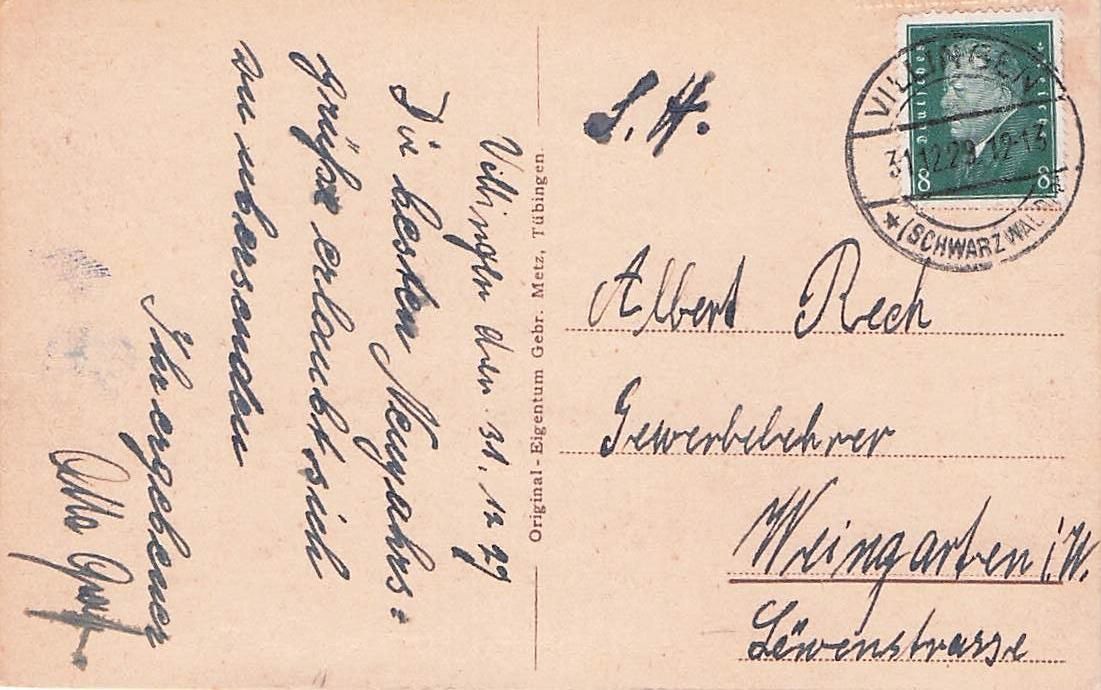 Villingen den 31. 12 29
Die besten Neujahrs=
grüsse erlaubt sich
zu übersenden
Ihr ergebener
Otto
Original-Eigentum Gebr. Metz, Tübingen.
S. H.
Albert Rech
Gewerbelehrer
Weingarten i. W.
Löwenstrasse
Deutsches Reich
8 8
VILLINGEN
31.12.29.12-13
* (SCHWARZWALD)